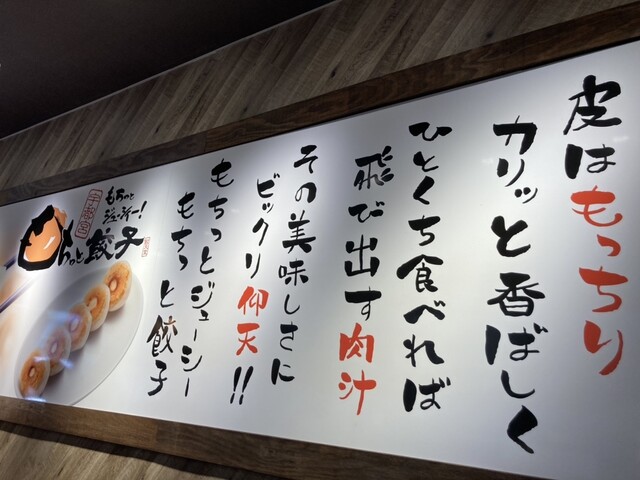 皮はもっちり
カリッと香ばしく
ひとくち食べれば
飛び出す肉汁
その美味しさに
ビックリ仰天!!
もちっとジューシー
もちっと餃子
もちっと
ジューシー!
宇都宮
もちっと餃子